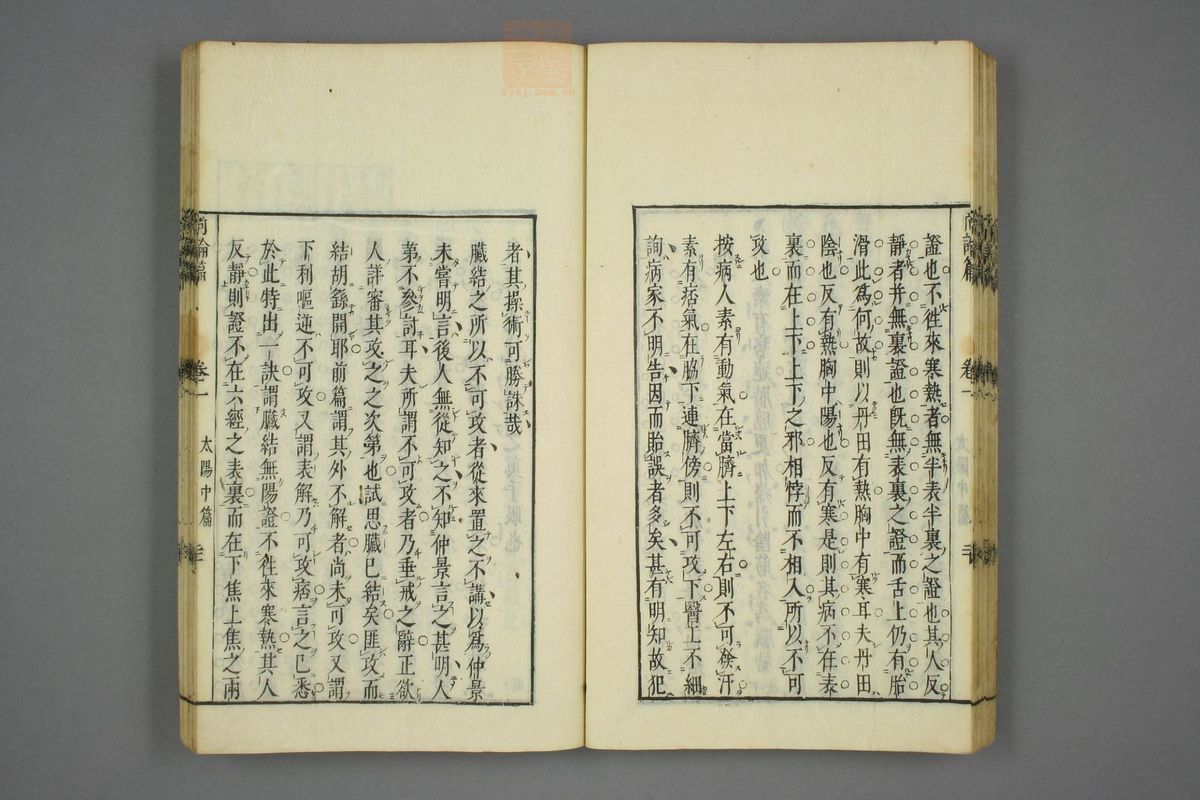 證也不徃來寒熱者無半表半裏之證也其人反
靜者并無裏證也旣無表裏之證而舌上仍有胎
滑此爲何故則以丹田有熱胸中有寒耳夫丹田
陰也反有熱胸中陽也反有寒是則其病不在表
裏而在上下上下之邪相悖而不相入所以不可
攻也
按病人素有動氣在當臍上下左右則不可發汗
素有痞氣在脇下連臍傍則不可攻下醫工不細
詢病家不明告因而貽誤者多矣甚有明知故犯
尚論篇
卷一
者其操術可勝誅哉
臟結之所以不可攻者從來置之不講以爲仲景
未嘗明言後人無從知之不知仲景言之甚明人
第不參討耳夫所謂不可攻者乃垂戒之辭正欲
人詳審其攻之之次第也試思臟已結矣匪攻而
結胡繇開耶前篇謂其外不解者尚未可攻又謂
下利嘔逆不可攻又謂表解乃可攻痞言之已悉
於此特出一訣謂臟結無陽證不徃來寒熱其人
反靜則證不在六經之表裏而在下焦上焦之兩
尚論篇
卷一
太陽中篇
zysj.com.cn